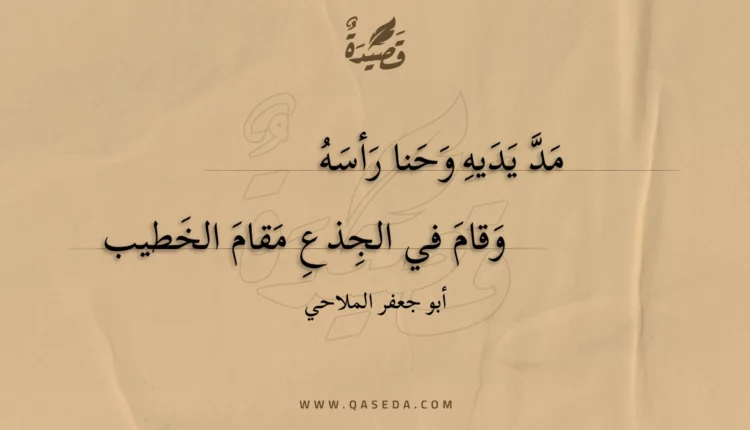 قَصِيدَةٌ
مَدَّ يَدَيهِ وَحَنا رَأسَهُ
وَقامَ في الجِذعِ مَقامَ الخَطيب
أبو جعفر الملاحي
WWW.QASEDA.COM